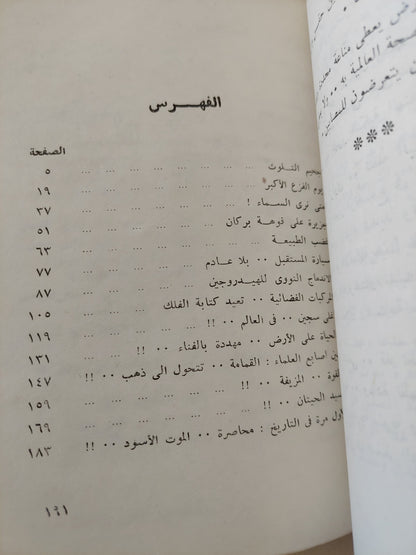 الفهرس
الصفحة
جحيم التلوث ... ... ... ... ... ... ... ٥
يوم الفزع الأكبر ... ... ... ... ... ... ١٩
متى نرى السماء ! ... ... ... ... ... ... ٣٧
جزيرة على فوهة بركان ... ... ... ... ... ٥١
غضب الطبيعة ... ... ... ... ... ... ... ٦٣
سيارة المستقبل .. بلا عادم ... ... ... ... ٧٧
الاندماج النووى للهيدروجين ... ... ... ... ٨٧
المركبات الفضائية .. تعيد كتابة الفلك ... ١٠٥
سجين .. فى العالم .. !! ... ... ... ١١٩
الحياة على الأرض .. مهددة بالفناء .. !! ... ١٣١
بين اصابع العلماء : القمامة .. تتحول الى ذهب .. !! ١٤٧
المزيفة .. !! ... ... ... ... ... ١٥٩
الحيتان .. !! ... ... ... ... ... ١٦٩
لأول مرة فى التاريخ : محاصرة .. الموت الأسود .. !! ١٨٣
يعطى مناعة
العالمية به
يتعرضون للمصابين
***